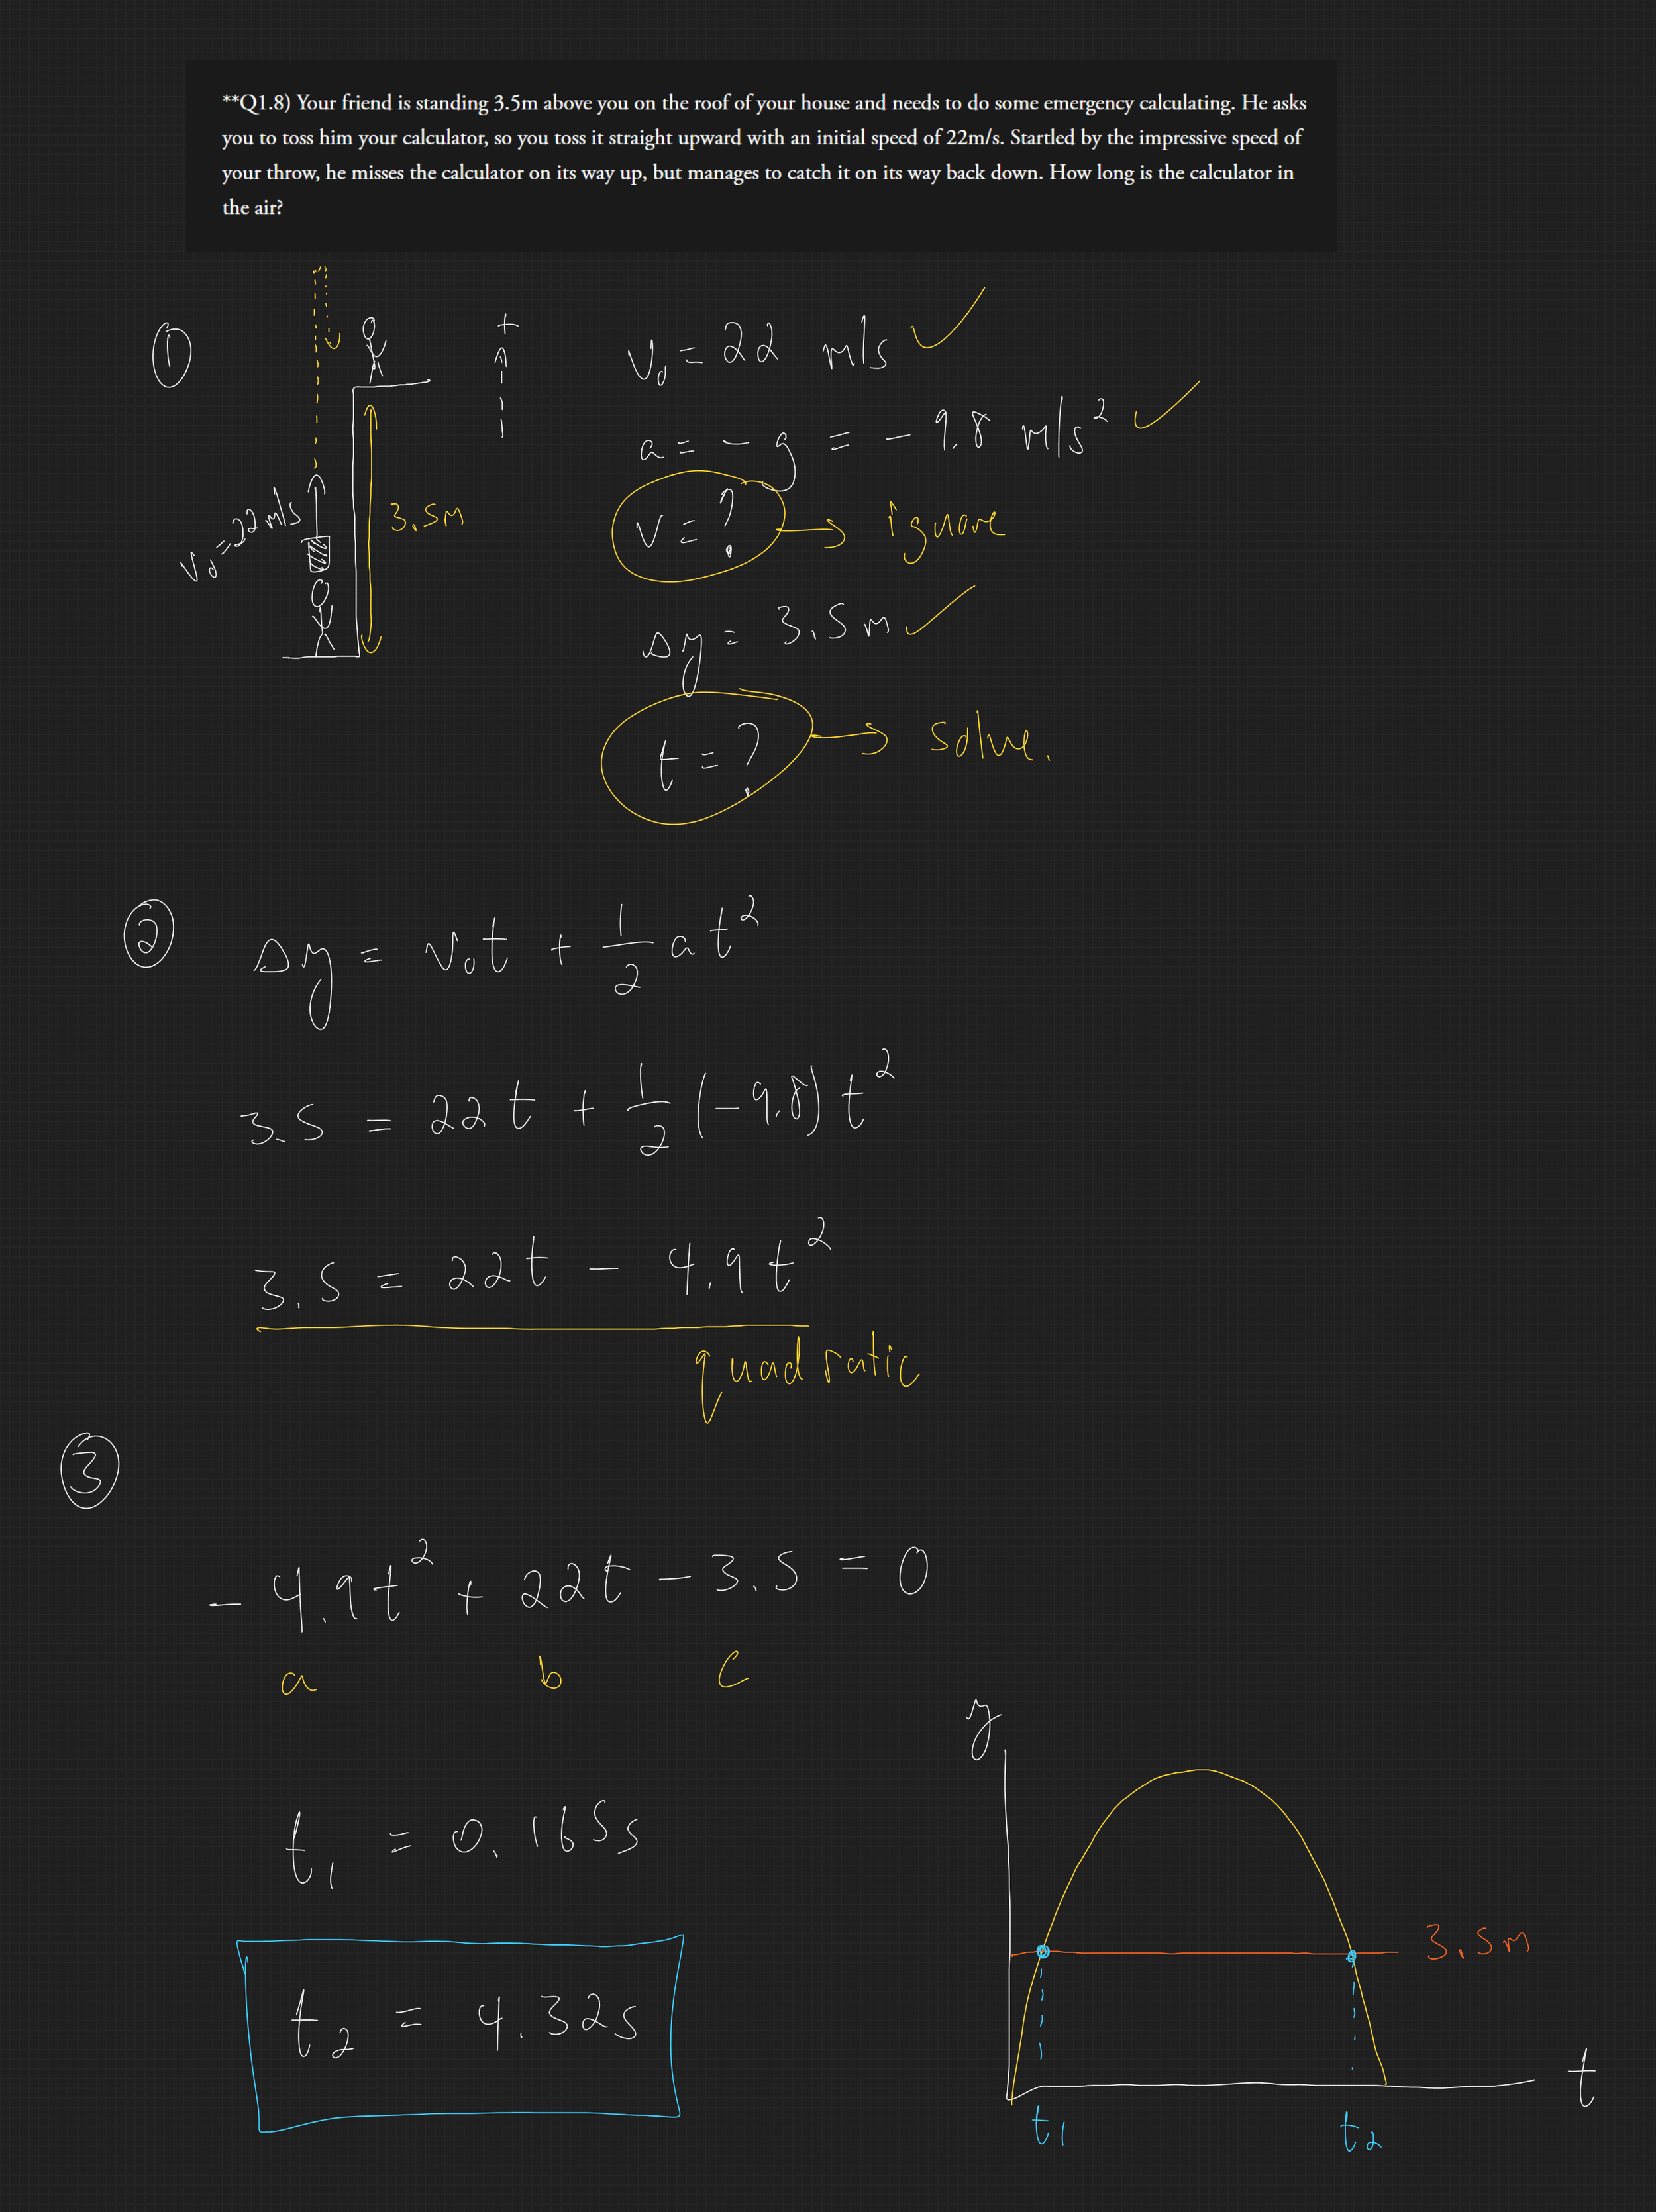 **Q1.8) Your friend is standing 3.5m above you on the roof of your house and needs to do some emergency calculating. He asks
you to toss him your calculator, so you toss it straight upward with an initial speed of 22m/s. Startled by the impressive speed of
your throw, he misses the calculator on its way up, but manages to catch it on its way back down. How long is the calculator in
the air?
①
+
v₀ = 22 m/s
3.5m
v₀ = 22 m/s ✓
a = -g = -9.8 m/s² ✓
v = ? → ignore
Δy = 3.5m ✓
t = ? → solve.
②
Δy = v₀t + 1/2 at²
3.5 = 22t + 1/2 (-9.8) t²
3.5 = 22t - 4.9t²
quadratic
③
-4.9t² + 22t - 3.5 = 0
a b c
t₁ = 0.165s
t₂ = 4.32s
y
3.5m
t
t₁ t₂